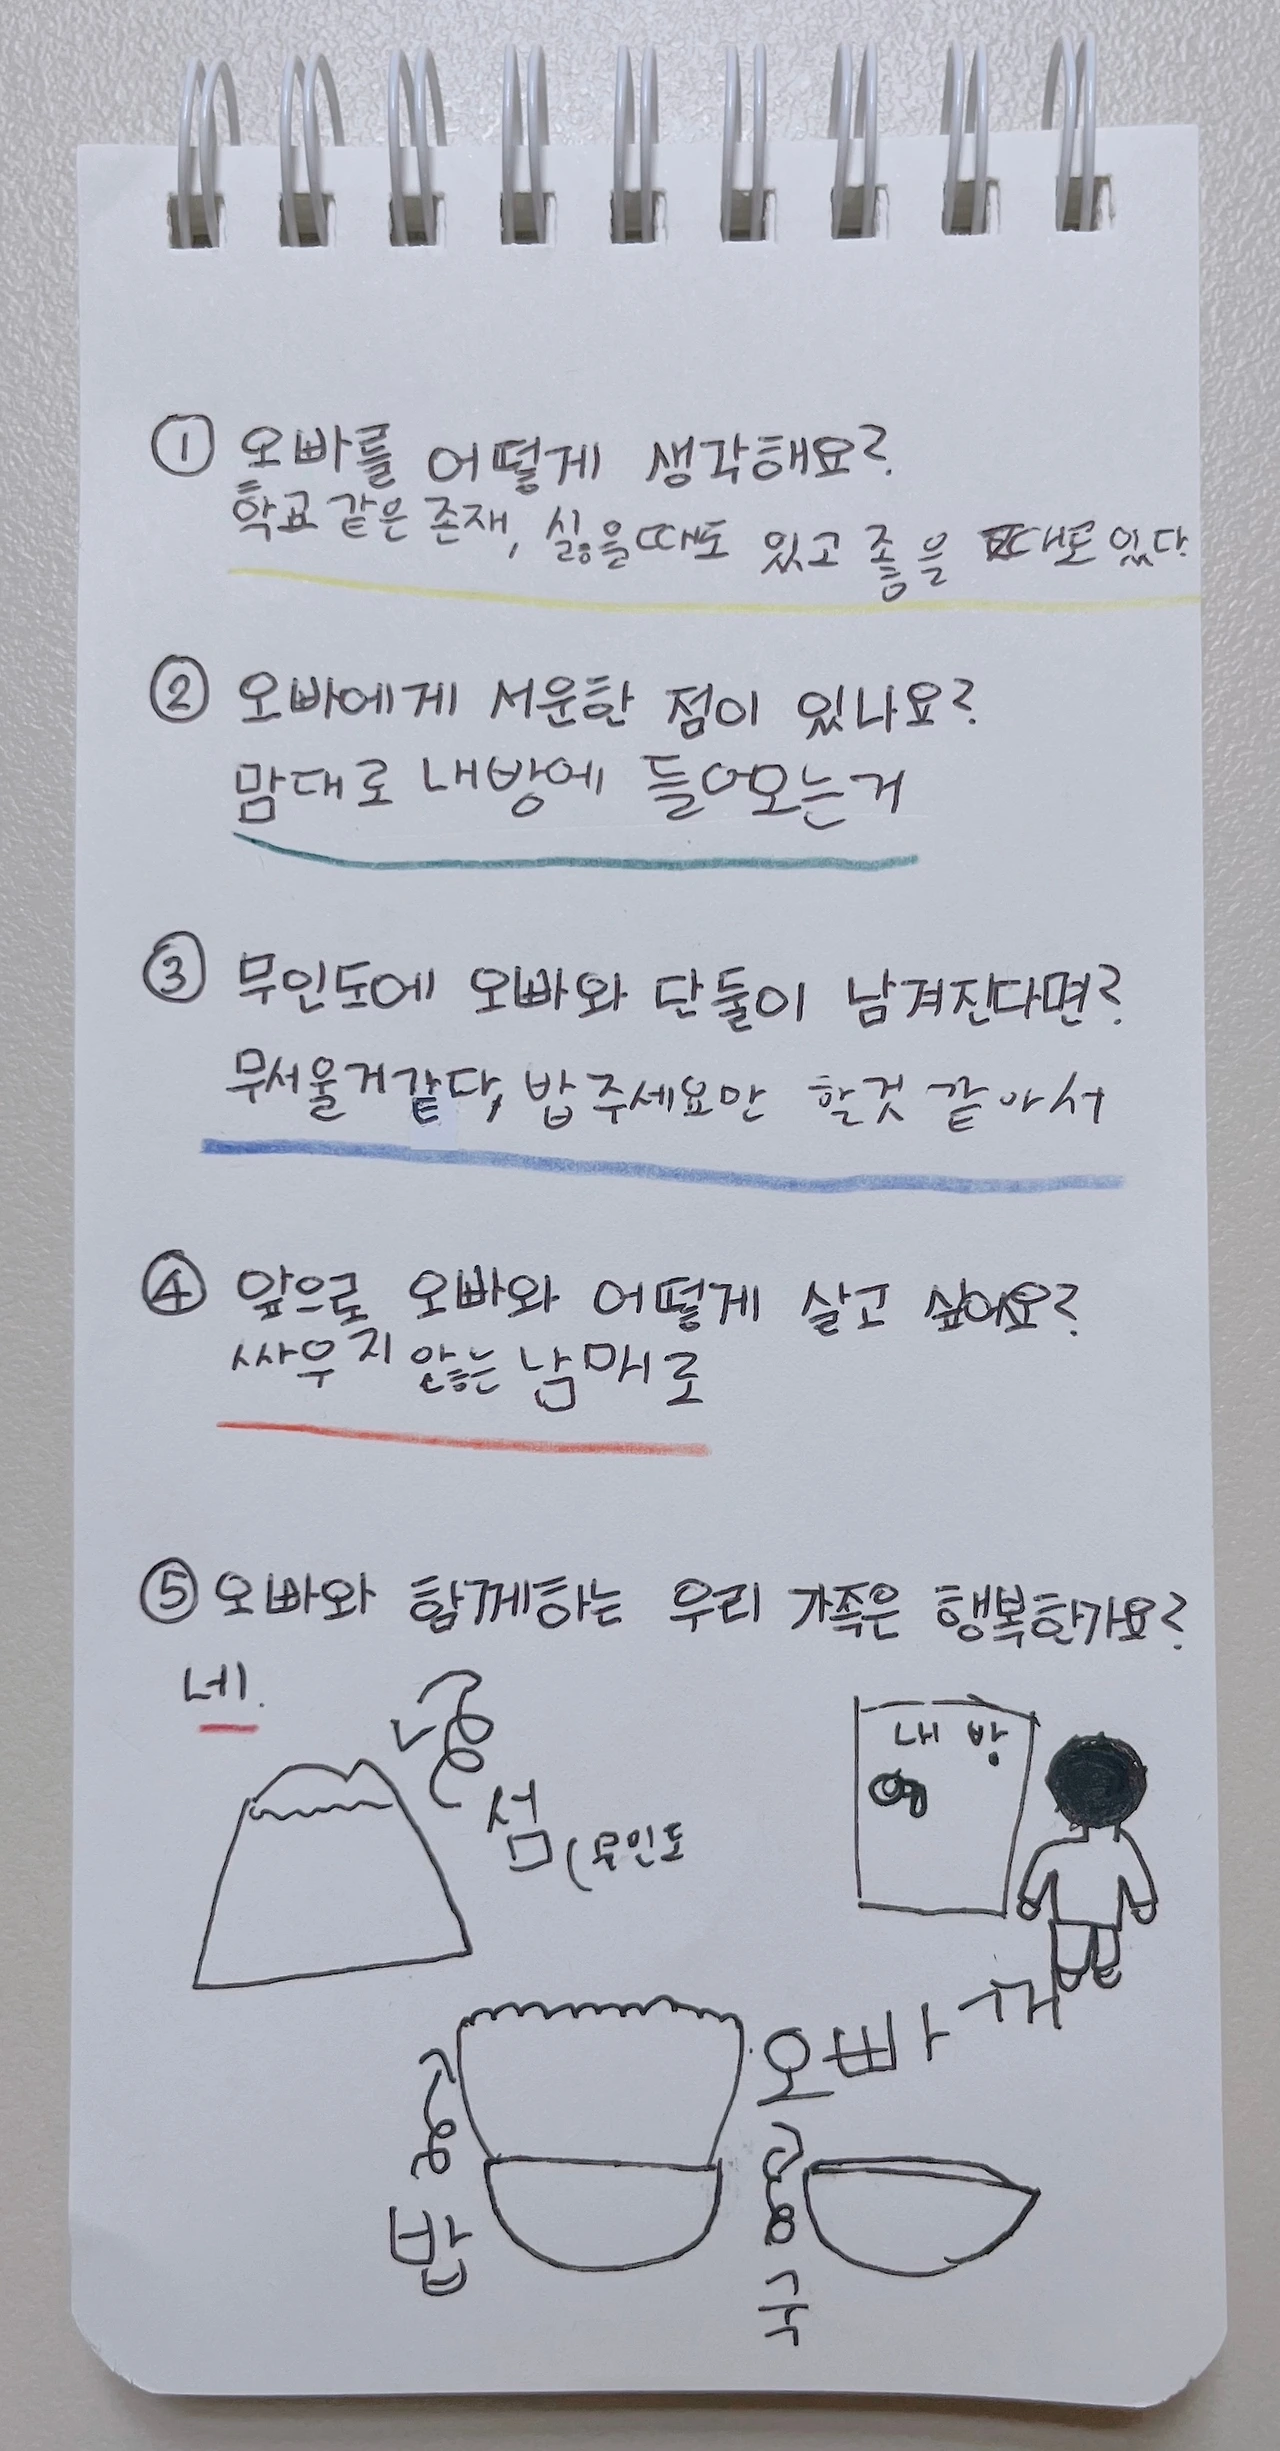 ① 오빠를 어떻게 생각해요?
학교 같은 존재, 싫을때도 있고 좋을 때도 있다
② 오빠에게 서운한 점이 있나요?
맘대로 내방에 들어오는거
③ 무인도에 오빠와 단둘이 남겨진다면?
무서울거같다, 밥 주세요만 할것 같아서
④ 앞으로 오빠와 어떻게 살고 싶어요?
싸우지 않는 남매로
⑤ 오빠와 함께하는 우리 가족은 행복한가요?
네.
내 방
섬 (무인도
오빠
밥
국